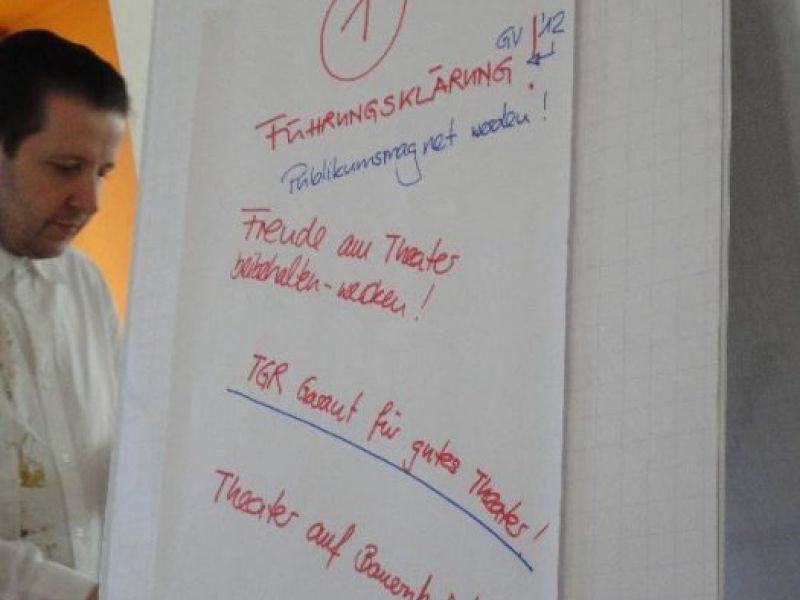 1
GV '12
FÜHRUNGSKLÄRUNG !
Publikumsmagnet werden !
Freude am Theater
beibehalten - wecken !
TGR Garant für gutes Theater !
Theater auf